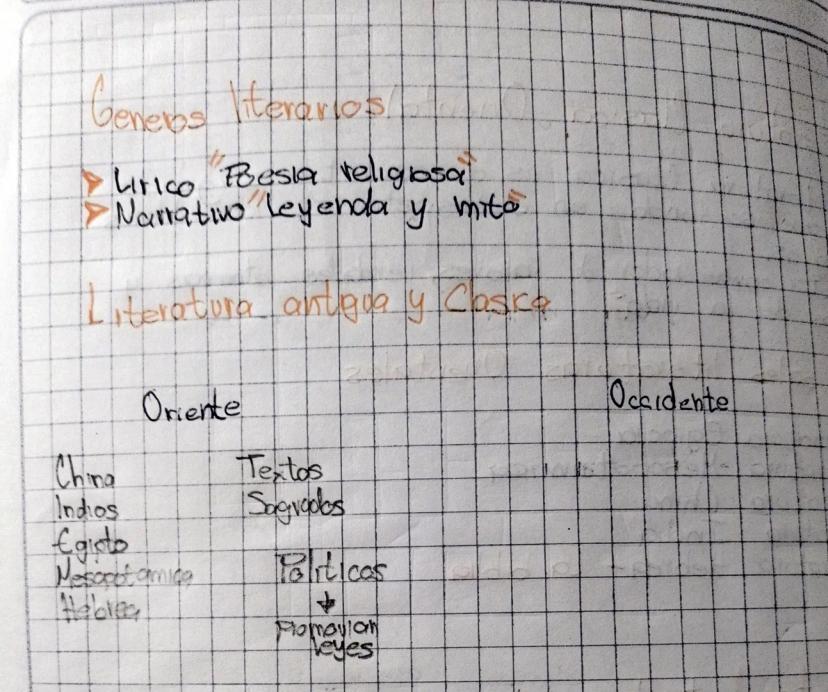 Generos literarios
Lirico "Poesia religiosa"
Narrativo "Leyenda y mito"
Literatura antigua y Clasica
Oriente
Occidente
China
Textos
Indios
Sagrados
Egipto
Mesopotamica
Politicos
Hebrea
Promovian
leyes